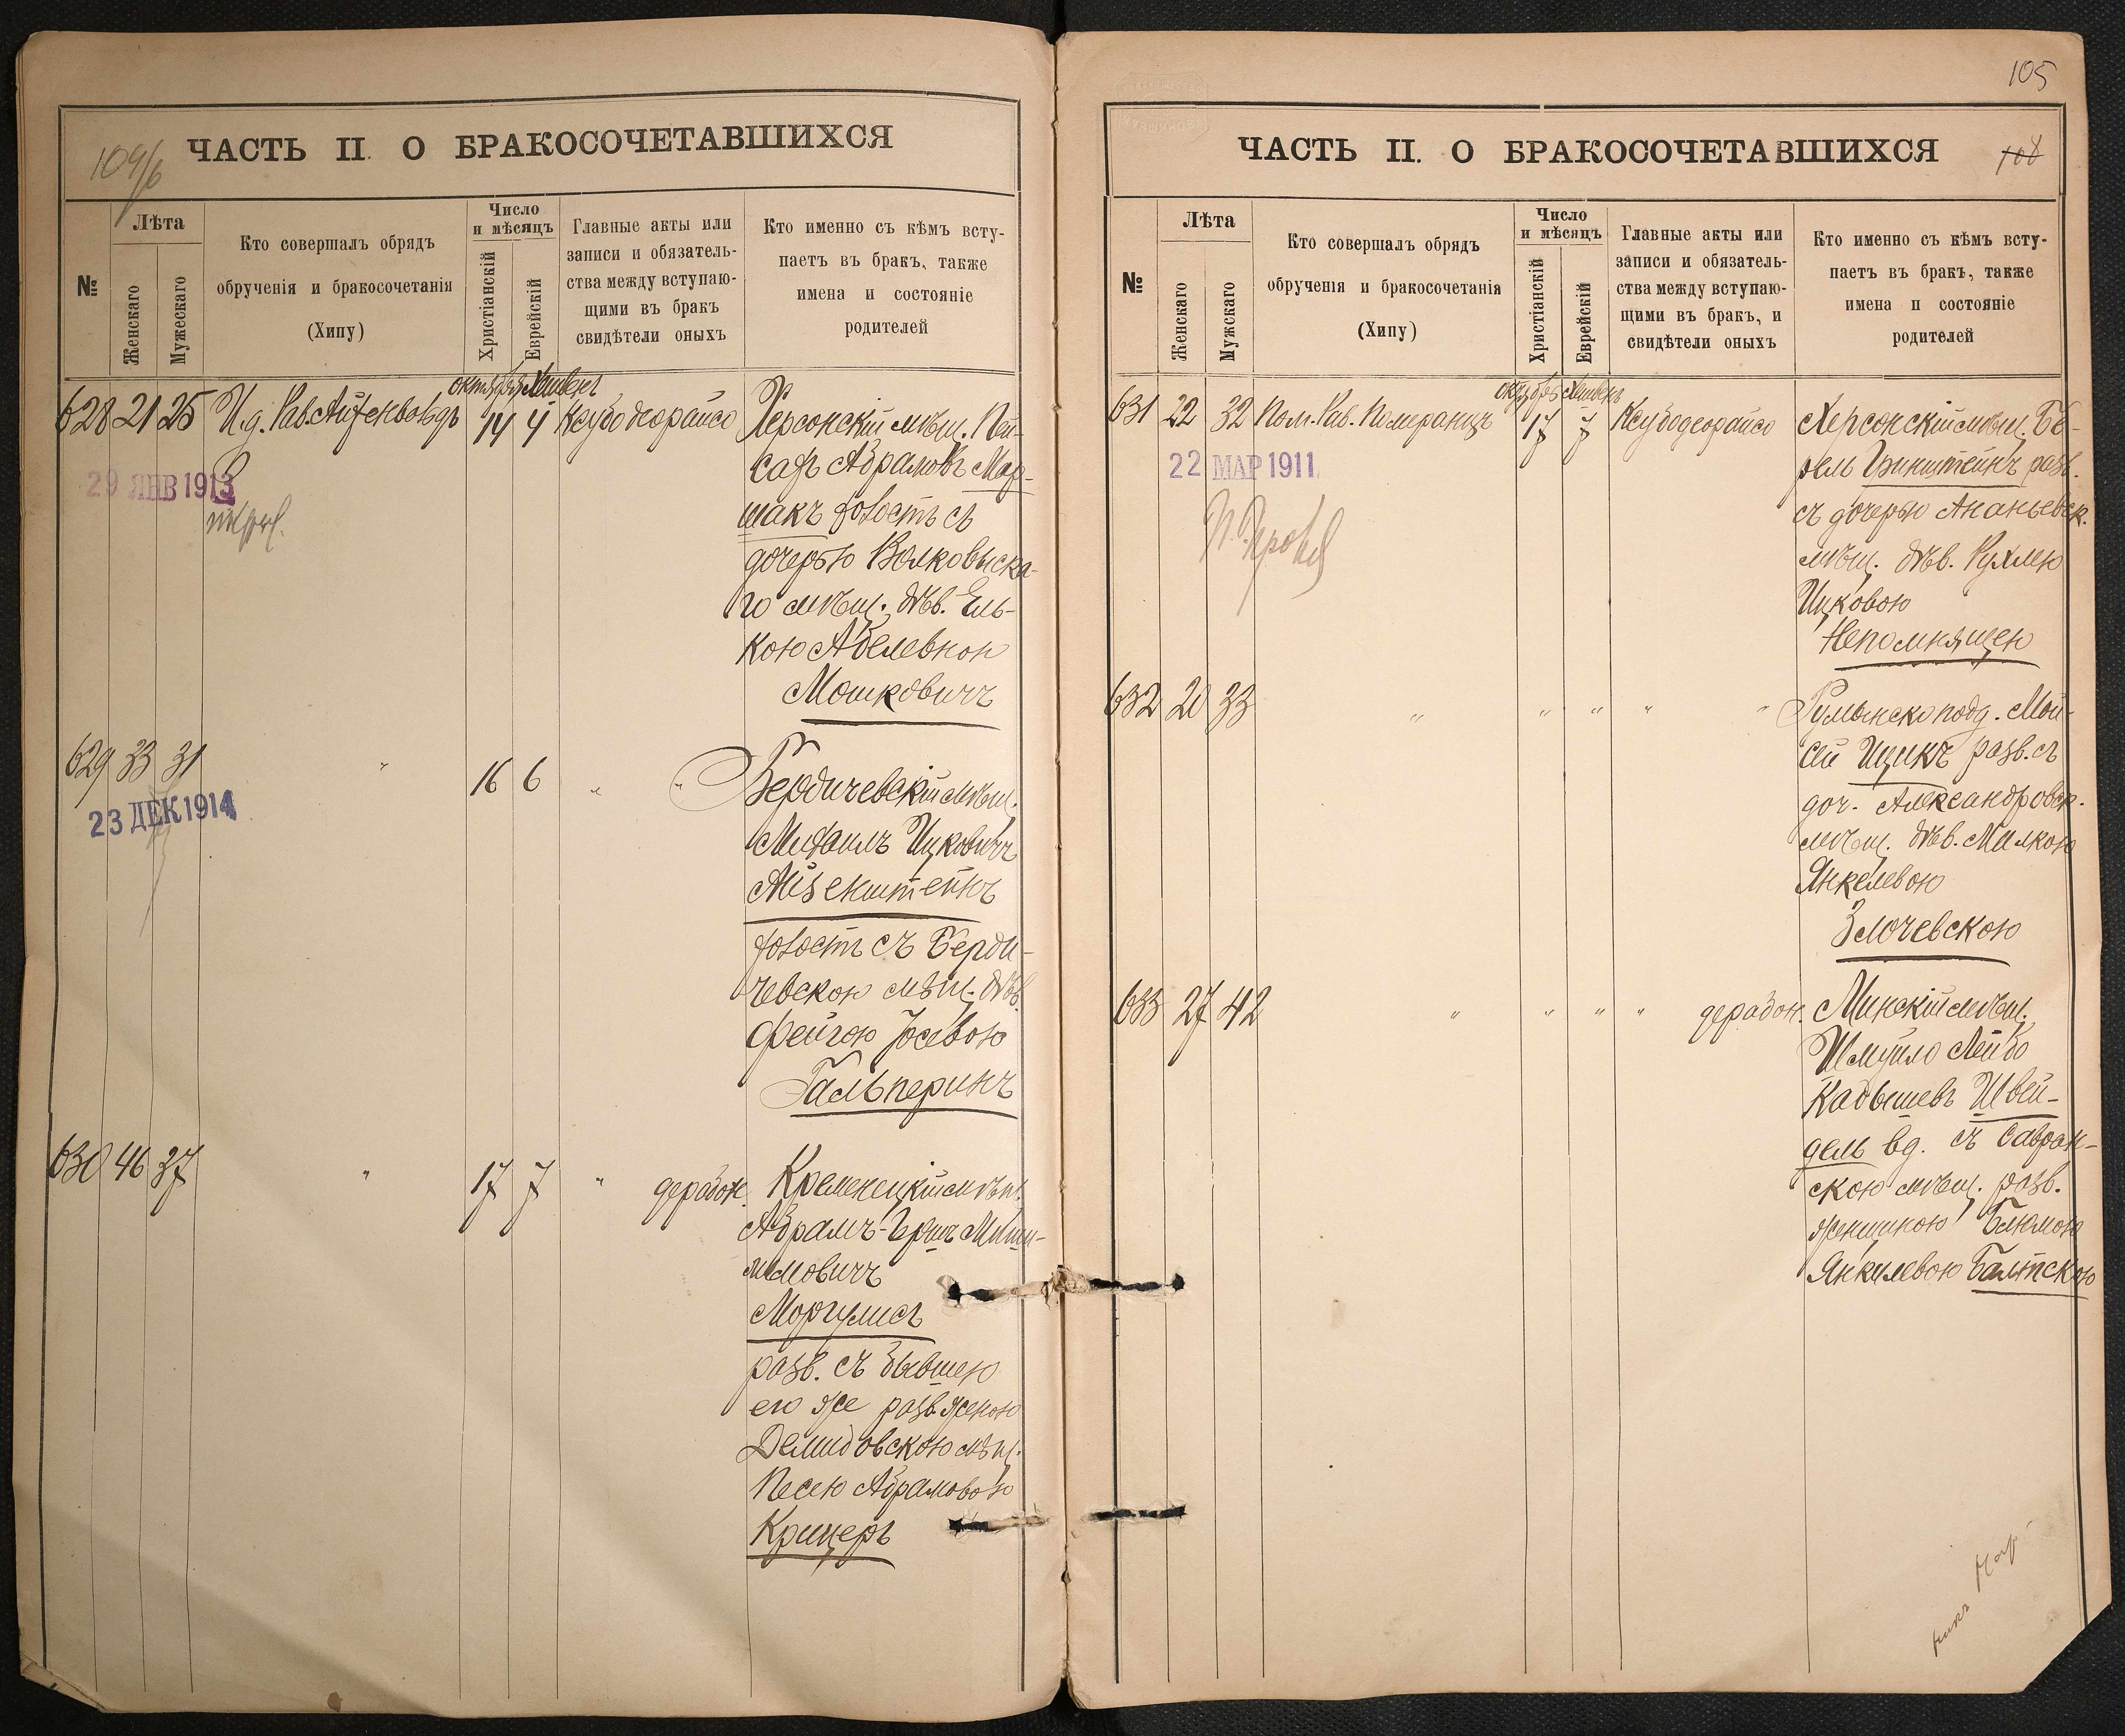 109/6
ЧАСТЬ II. О БРАКОСОЧЕТАВШИХСЯ
№
Лѣта
Женскаго
Мужескаго
Кто совершалъ обрядъ
обрученія и бракосочетанія
(Хипу)
Число
и мѣсяцъ
Христіанскій
Еврейскій
Главные акты или
записи и обязатель-
ства между вступаю-
щими въ бракъ
свидѣтели оныхъ
Кто именно съ кѣмъ всту-
паетъ въ бракъ, также
имена и состояніе
родителей
октябрь Хешвенъ
628 21 25 И.д. Рав. 14 4 Ксубо деорайсо
Херсонскій мѣщ. Пей-
сахъ Абрамовъ Мар-
шакъ холостъ съ
дочерью Волковыска-
го мѣщ. дѣв. Ель-
кою Абелевною
Мошковичъ
29 ЯНВ 1913
629 33 31 " 16 6 " "
Бердичевскій мѣщ.
Михаилъ Ицковичъ
Айзенштейнъ
холост съ Берди-
чевскою мѣщ. дѣв.
Фейгою Іосевою
Гальперинъ
23 ДЕК 1914
630 46 37 " 17 7 " дерабон.
Кременецкій мѣщ.
Абрамъ-Гершъ
Моргулисъ
разв. съ бывшею
его же разв. женою
Демидовскою мѣщ.
Песею Абрамовою
Крицеръ
105
ЧАСТЬ II. О БРАКОСОЧЕТАВШИХСЯ
108
№
Лѣта
Женскаго
Мужскаго
Кто совершалъ обрядъ
обрученія и бракосочетанія
(Хипу)
Число
и мѣсяцъ
Христіанскій
Еврейскій
Главные акты или
записи и обязатель-
ства между вступаю-
щими въ бракъ, и
свидѣтели оныхъ
Кто именно съ кѣмъ всту-
паетъ въ бракъ, также
имена и состояніе
родителей
октябрь Хешвенъ
631 22 32 Пом. Рав. Померанцъ 17 7 Ксубо деорайсо
Херсонскій мѣщ. Бе-
рель Гринштейнъ разв.
съ дочерью Ананьевск.
мѣщ. дѣв. Рухлею
Ицковою
Непомнящею
22 МАР 1911
632 20 33 " " " " "
Румынско подд. Мой-
сей Ицикъ разв. съ
доч. Александровск.
мѣщ. дѣв. Малкою
Янкелевою
Злочевскою
633 27 42 " " " " дерабон.
Минскій мѣщ.
Шмуйло Лейбо
Кадышевъ Швей-
дель вд. съ Савран-
скою мѣщ. разв.
женщиною Блюмою
Янкелевою Балтскою